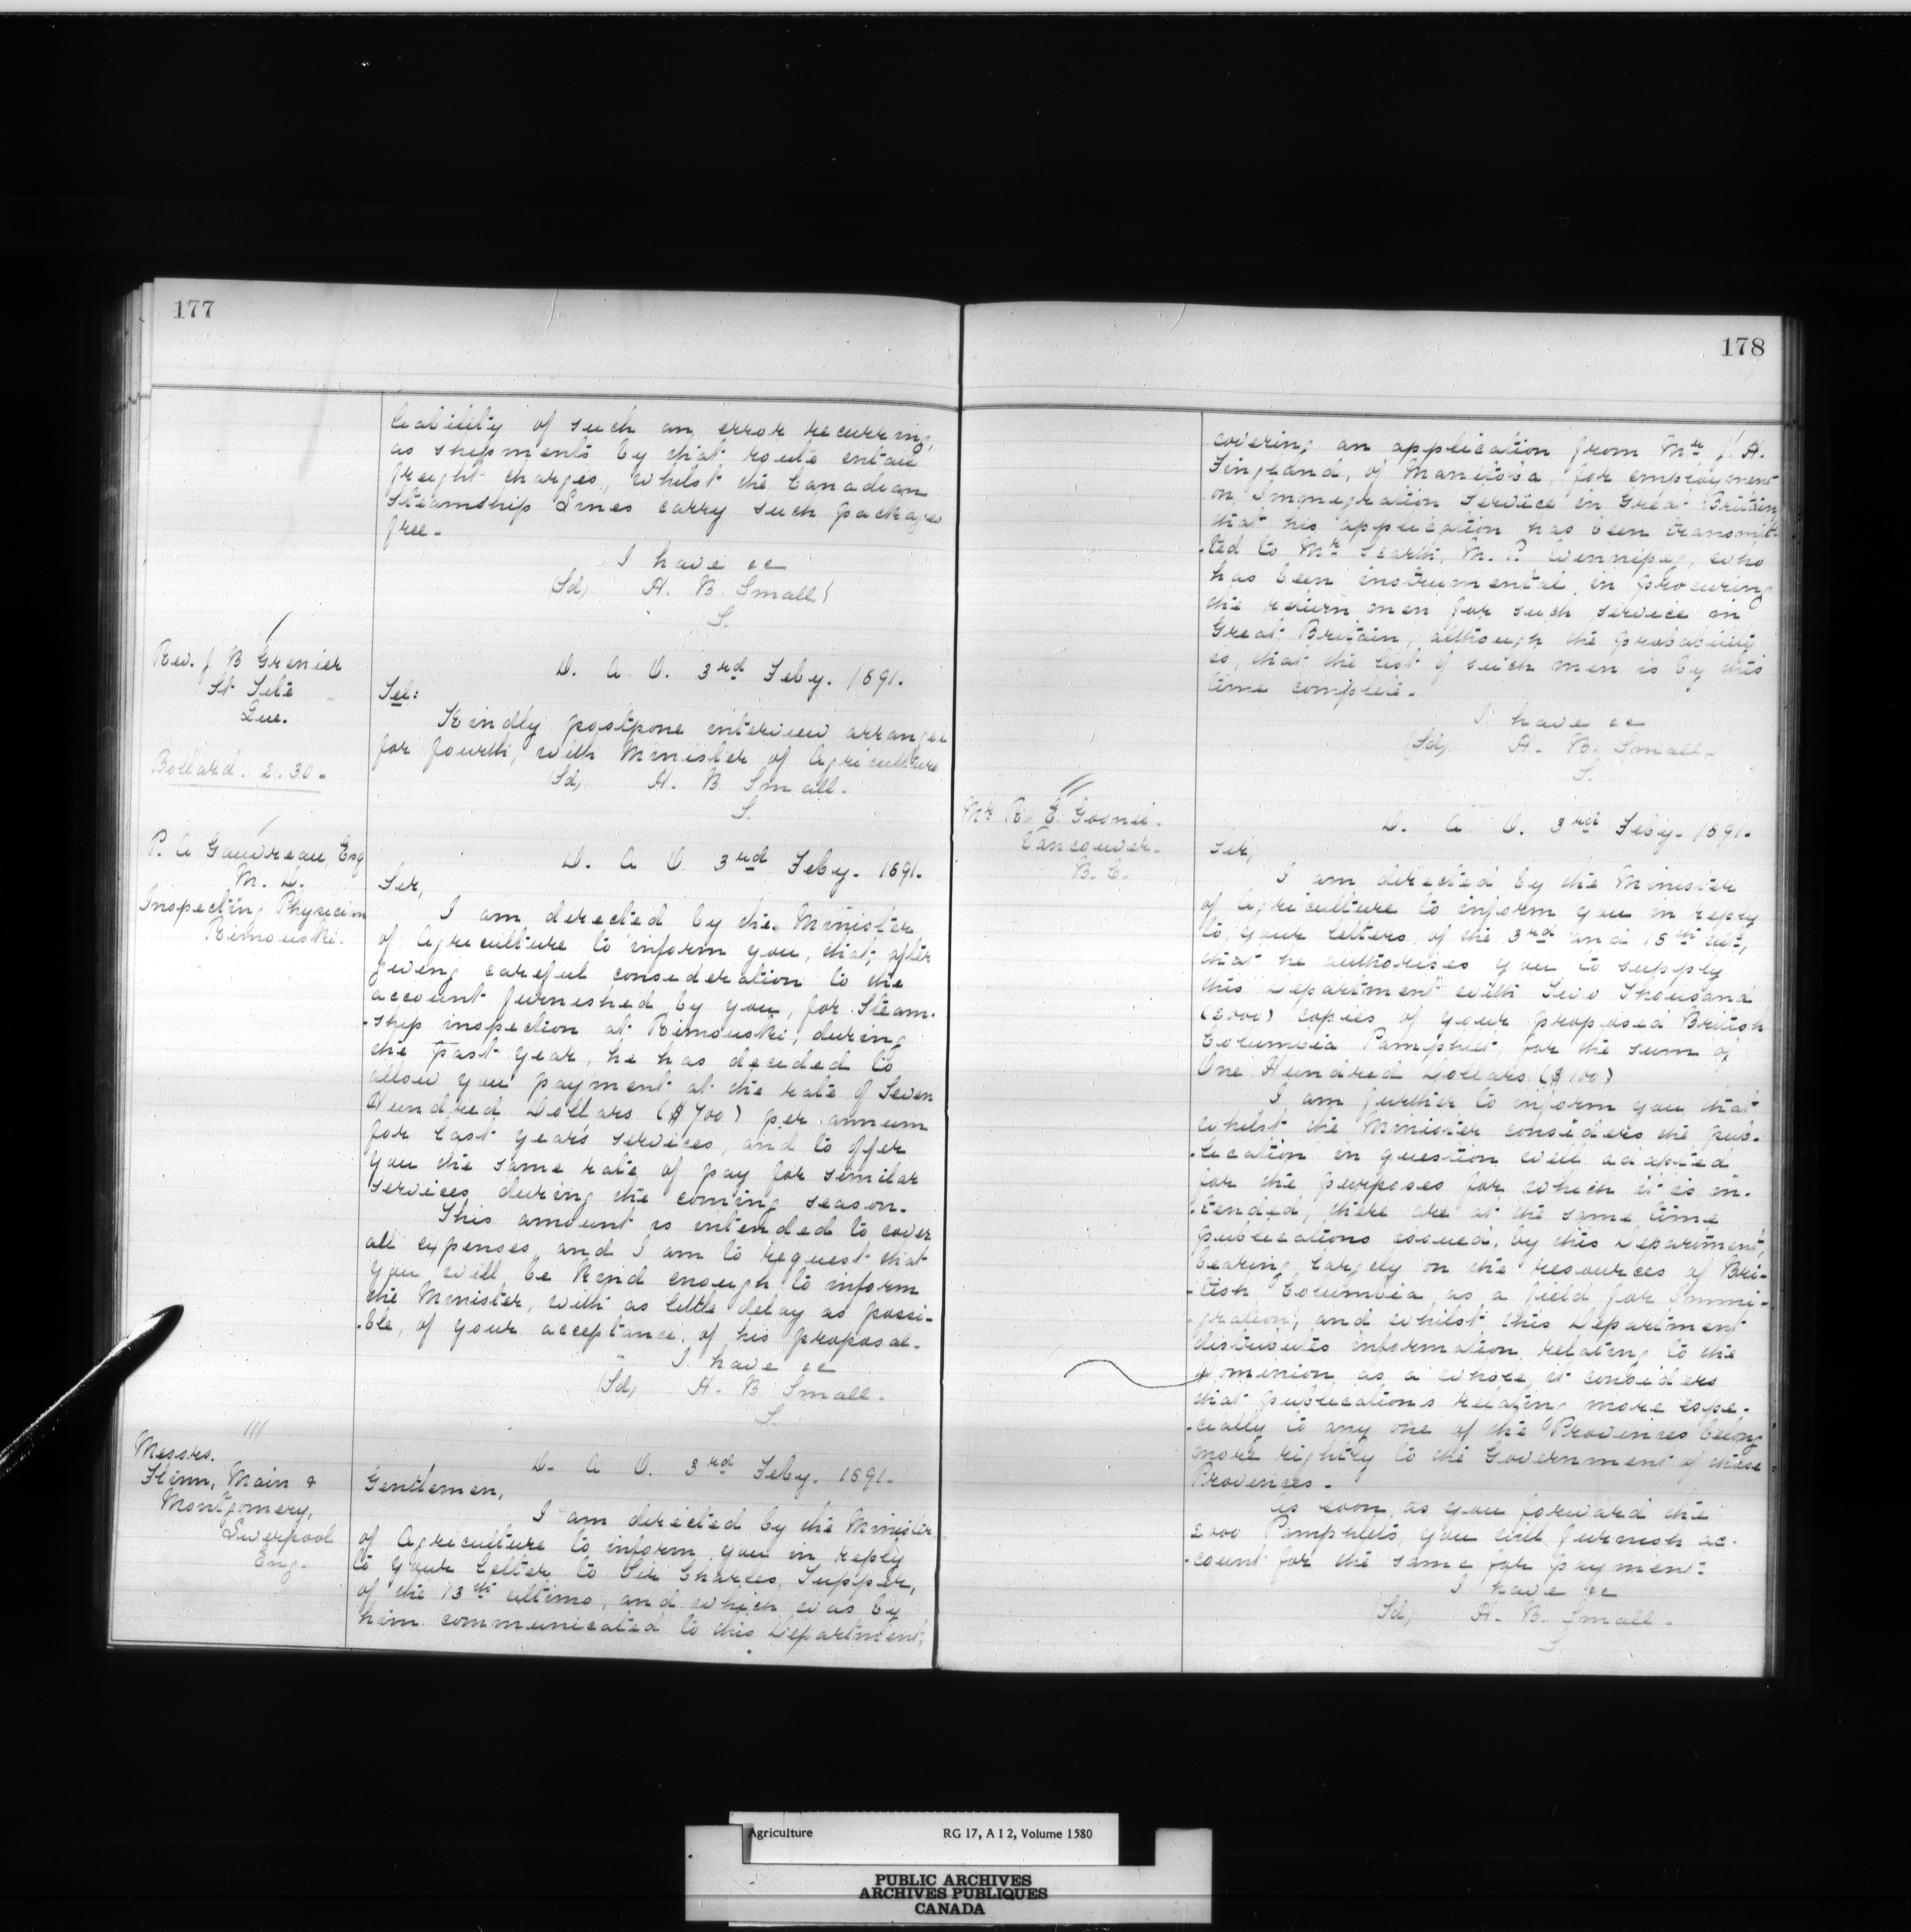 177
liability of such an error recurring,
as shipments by that route entail
freight charges, whilst the Canadian
Steamship Lines carry such packages
free.
I have &c
(Sd) H. B. Small
S.
Rev. J B Grenier
St Tite
Que.
Collard. 2.30.
D. A. O. 3rd Feby. 1891.
Sir:
Kindly postpone interview arranged
for fourth, with Minister of Agriculture
(Sd) H. B. Small.
S.
P. A Gauvreau, Esq
M. D.
Inspecting Physician
Rimouski.
D. A O 3rd Feby. 1891.
Sir,
I am directed by the Minister
of Agriculture to inform you, that, after
giving careful consideration to the
account furnished by you, for Steam-
-ship inspection at Rimouski, during
the past year, he has decided to
allow you payment at the rate of Seven
Hundred Dollars ($700) per annum
for last year's services, and to offer
you the same rate of pay for similar
services during the coming season.
This amount is intended to cover
all expenses, and I am to request that
you will be kind enough to inform
the Minister, with as little delay as possi-
-ble, of your acceptance of his proposal.
I have &c
(Sd) H. B Small.
S.
Messrs.
Flinn, Main &
Montgomery,
Liverpool
Eng.
D. A O. 3rd Feby. 1891.
Gentlemen,
I am directed by the Minister
of Agriculture to inform you in reply
to your letter to Sir Charles Tupper,
of the 13th ultimo, and which was by
him communicated to this Department,
178
covering an application from Mr J. A.
Fingland, of Manitoba, for employment
on Immigration Service in Great Britain
that his application has been transmit-
-ted to Mr Scarth, M. P. Winnipeg, who
has been instrumental in procuring
the return men for such service in
Great Britain, although the probability
is, that the list of such men is by this
time complete.
I have &c
(Sd) H. B. Small.
S.
Mr R. E. Gosnell.
Vancouver.
B. C.
D. A O. 3rd Feby. 1891.
Sir,
I am directed by the Minister
of Agriculture to inform you in reply
to your letters of the 3rd and 15th ult,
that he authorises you to supply
this Department with Two Thousand
(2000) copies of your proposed British
Columbia Pamphlet, for the sum of
One Hundred Dollars ($100)
I am further to inform you that
whilst the Minister considers the pub-
-lication in question well adapted
for the purposes for which it is in-
-tended, there are at the same time
publications issued, by this Department,
bearing largely on the resources of Bri-
-tish Columbia as a field for Immi-
-gration, and whilst this Department
distributes information relating to the
Dominion as a whole, it considers
that publications relating more espe-
-cially to any one of the Provinces belong
more rightly to the Government of these
Provinces.
As soon as you forward the
2000 Pamphlets, you will furnish ac-
-count for the same for payment.
I have &c
(Sd) H. B. Small.
S
Agriculture RG 17, A I 2, Volume 1580
PUBLIC ARCHIVES
ARCHIVES PUBLIQUES
CANADA